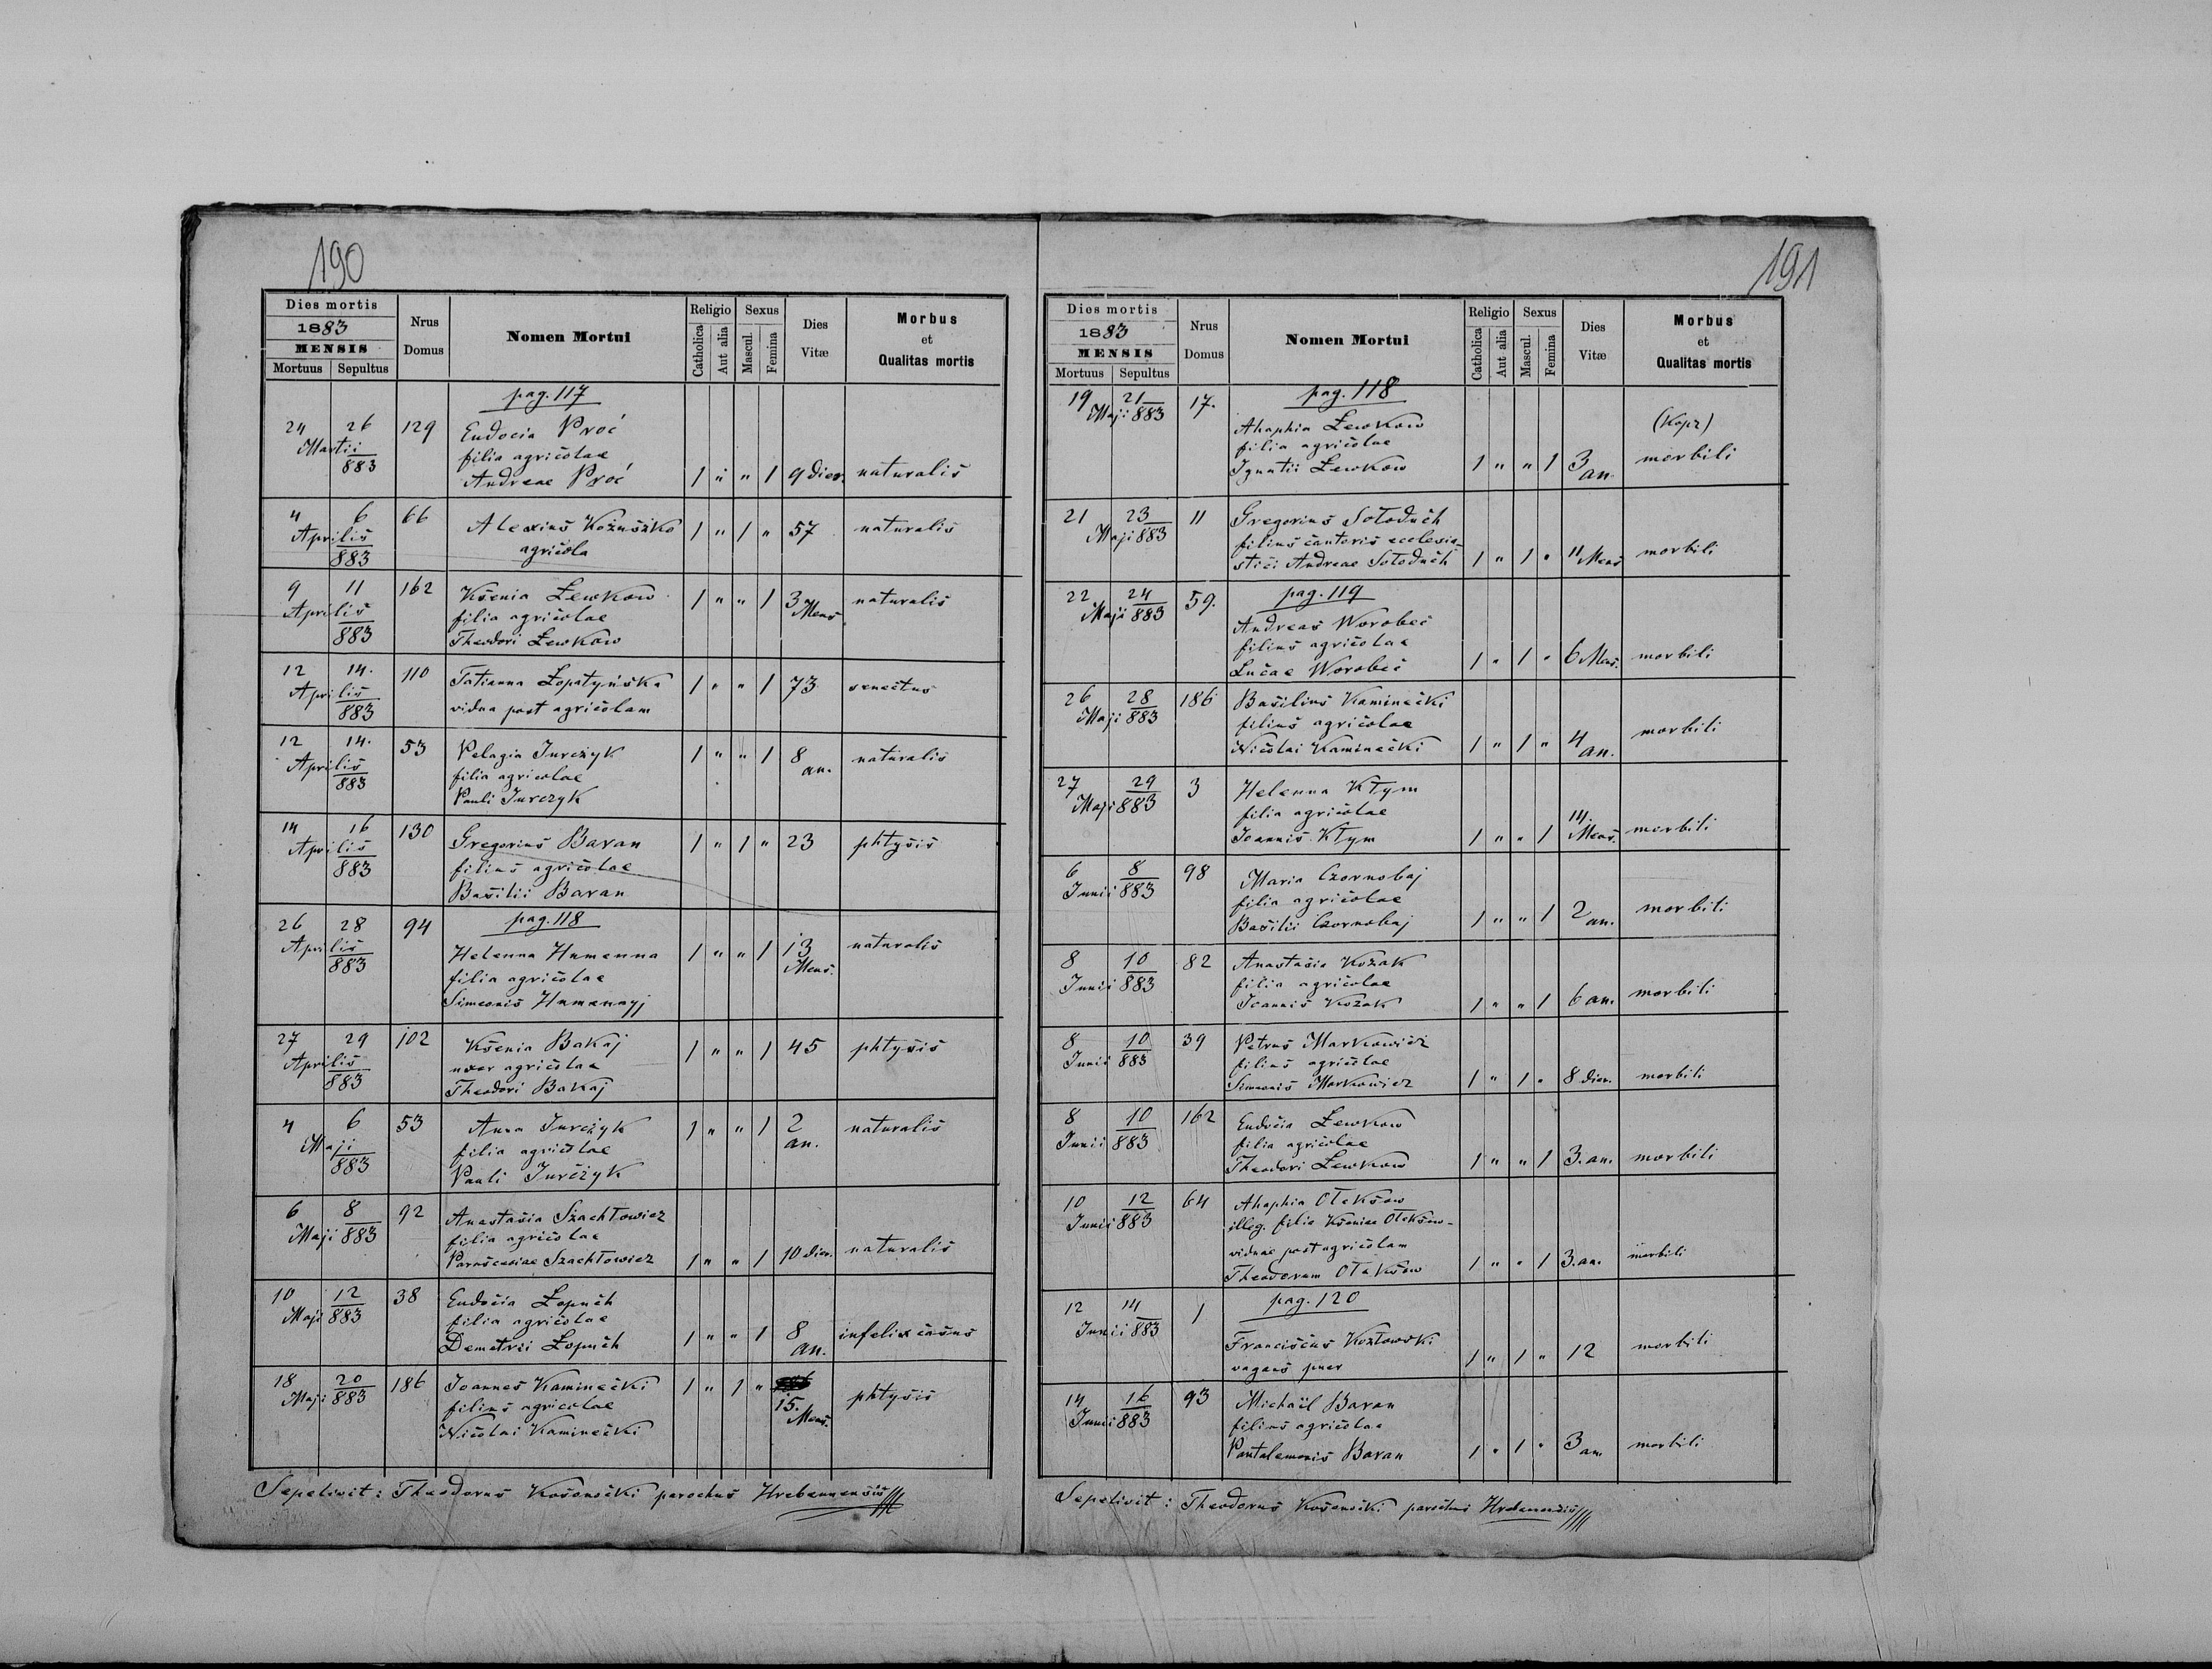 190
Dies mortis
1883
MENSIS
Mortuus Sepultus
Nrus Domus
Nomen Mortui
Religio
Catholica
Aut alia
Sexus
Mascul.
Femina
Dies Vitæ
Morbus et Qualitas mortis
pag. 117
24 26 129 Eudocia Proć
Martii filia agricolae
883 Andreae Proć 1 " " 1 9 dier. naturalis
4 6 66 Alexius Kożuszko 1 " 1 " 57 naturalis
Aprilis agricola
883
9 11 162 Ksenia Łewkow 1 " " 1 3 Mens. naturalis
Aprilis filia agricolae
883 Theodori Łewkow
12 14. 110 Tatianna Łopatyńska 1 " " 1 73 senectus
Aprilis vidua post agricolam
883
12 14. 53 Pelagia Jurczyk 1 " " 1 8 an. naturalis
Aprilis filia agricolae
883 Pauli Jurczyk
14 16 130 Gregorius Baran 1 " 1 " 23 phtysis
Aprilis filius agricolae
883 Basilii Baran
pag. 118
26 28 94
Aprilis Helenna Humenna 1 " " 1 13 Mens. naturalis
883 filia agricolae
Simeonis Humennyj
27 29 102 Ksenia Bakaj 1 " " 1 45 phtysis
Aprilis uxor agricolae
883 Theodori Bakaj
4 6 53 Anna Jurczyk 1 " " 1 2 an. naturalis
Maji filia agricolae
883 Pauli Jurczyk
6 8 92 Anastasia Szachtowicz
Maji 883 filia agricolae
Parasceviae Szachtowicz 1 " " 1 10 dier. naturalis
10 12 38 Eudocia Łopuch
Maji 883 filia agricolae
Demetrii Łopuch 1 " " 1 8 an. infelix casus
18 20 186 Joannes Kaminecki 1 " 1 " 15. Mens. phtysis
Maji 883 filius agricolae
Nicolai Kaminecki
Sepelivit: Theodorus Kosonocki parochus Hrebennensis
191
Dies mortis
1883
MENSIS
Mortuus Sepultus
Nrus Domus
Nomen Mortui
Religio
Catholica
Aut alia
Sexus
Mascul.
Femina
Dies Vitæ
Morbus et Qualitas mortis
pag. 118
19 21 17.
Maji 883 Ahaphia Łewkow (Kopr)
filia agricolae
Ignatii Łewkow 1 " " 1 3 an. morbili
21 23 11 Gregorius Sołoduch
Maji 883 filius cantoris ecclesia-
stici Andreae Sołoduch 1 " 1 " 11 Mens morbili
pag. 119
22 24 59.
Maji 883 Andreas Worobec
filius agricolae
Lucae Worobec 1 " 1 " 6 Mens. morbili
26 28 186 Basilius Kaminecki
Maji 883 filius agricolae
Nicolai Kaminecki 1 " 1 " 4 an. morbili
27 29 3 Helenna Kłym
Maji 883 filia agricolae
Joannis Kłym 1 " " 1 14. Mens. morbili
6 8 98 Maria Czornobaj
Junii 883 filia agricolae
Basilii Czornobaj 1 " " 1 2 an. morbili
8 10 82 Anastasia Kozak
Junii 883 filia agricolae
Joannis Kozak 1 " " 1 6 an. morbili
8 10 39 Petrus Markowicz
Junii 883 filius agricolae
Simeonis Markowicz 1 " 1 " 8 dier. morbili
8 10 162 Eudocia Łewkow
Junii 883 filia agricolae
Theodori Łewkow 1 " " 1 3. an. morbili
10 12 64 Ahaphia Ołeksow
Junii 883 illeg. filia Kseniae Ołeksow-
viduae post agricolam
Theodorum Ołeksow 1 " " 1 3. an. morbili
pag. 120
12 14 1
Junii 883 Franciscus Kozłowski
vagans puer 1 " 1 " 12 morbili
14 16 93 Michaël Baran
Junii 883 filius agricolae
Pantalemonis Baran 1 " 1 " 3 an. morbili
Sepelivit: Theodorus Kosonocki parochus Hrebennensis